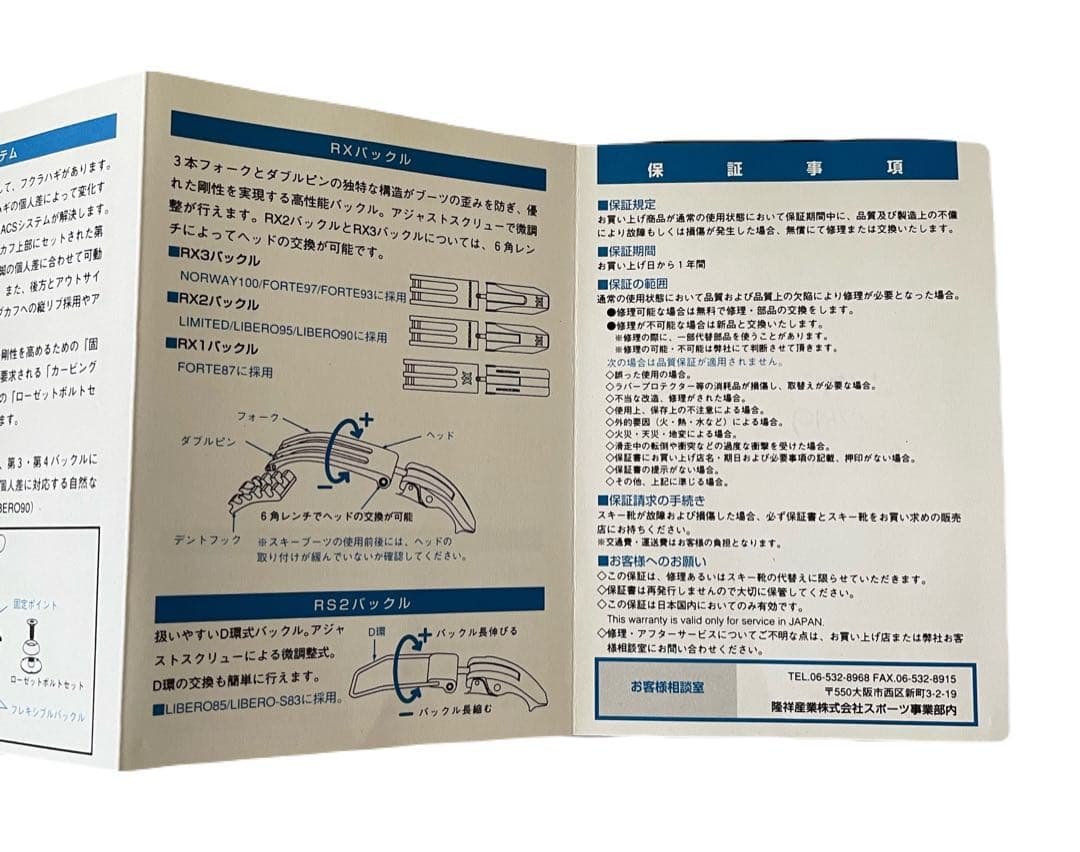 テム
して、フクラハギがあります。
ハギの個人差によって変化す
ACSシステムが解決します。
カフ上部にセットされた第
脚の個人差に合わせて可動
また、後方とアウトサイ
グカフへの縦リブ採用やア
剛性を高めるための「固
要求される「カービング
の「ローゼットボルトセ
ます。
、第3・第4バックルに
個人差に対応する自然な
BERO90）.
固定ポイント
ローゼットボルトセット
フレキシブルバックル
RXバックル
3本フォークとダブルピンの独特な構造がブーツの歪みを防ぎ、優
れた剛性を実現する高性能バックル。アジャストスクリューで微調
整が行えます。RX2バックルとRX3バックルについては、6角レン
チによってヘッドの交換が可能です。
■RX3バックル
NORWAY100/FORTE97/FORTE93に採用
■RX2バックル
LIMITED/LIBERO95/LIBERO90に採用
■RX1バックル
FORTE87に採用
フォーク
＋
ヘッド
ダブルピン
−
6角レンチでヘッドの交換が可能
デントフック
※スキーブーツの使用前後には、ヘッドの
取り付けが緩んでいないか確認してください。
RS2バックル
扱いやすいD環式バックル。アジャ
ストスクリューによる微調整式。
D環の交換も簡単に行えます。
■LIBERO85/LIBERO-S83に採用。
D環
＋ バックル長伸びる
− バックル長縮む
保証事項
■保証規定
お買い上げ商品が通常の使用状態において保証期間中に、品質及び製造上の不備
により故障もしくは損傷が発生した場合、無償にて修理または交換いたします。
■保証期間
お買い上げ日から1年間
■保証の範囲
通常の使用状態において品質および品質上の欠陥により修理が必要となった場合。
●修理可能な場合は無料で修理・部品の交換をします。
●修理が不可能な場合は新品と交換いたします。
※修理の際に、一部代替部品を使うことがあります。
※修理の可能・不可能は弊社にて判断させて頂きます。
次の場合は品質保証が適用されません。
◇誤った使用の場合。
◇ラバープロテクター等の消耗品が損傷し、取替えが必要な場合。
◇不当な改造、修理がされた場合。
◇使用上、保存上の不注意による場合。
◇外的要因（火・熱・水など）による場合。
◇火災・天災・地変による場合。
◇滑走中の転倒や衝突などの過度な衝撃を受けた場合。
◇保証書にお買い上げ店名・期日および必要事項の記載、押印がない場合。
◇保証書の提示がない場合。
◇その他、上記に準じる場合。
■保証請求の手続き
スキー靴が故障および損傷した場合、必ず保証書とスキー靴をお買い求めの販売
店にお持ちください。
※交通費・運送費はお客様の負担となります。
■お客様へのお願い
◇この保証は、修理あるいはスキー靴の代替えに限らせていただきます。
◇保証書は再発行しませんので大切に保管してください。
◇この保証は日本国内においてのみ有効です。
This warranty is valid only for service in JAPAN.
◇修理・アフターサービスについてご不明な点は、お買い上げ店または弊社お客
様相談室にお問い合わせください。
お客様相談室
TEL.06-532-8968 FAX.06-532-8915
〒550大阪市西区新町3-2-19
隆祥産業株式会社スポーツ事業部内